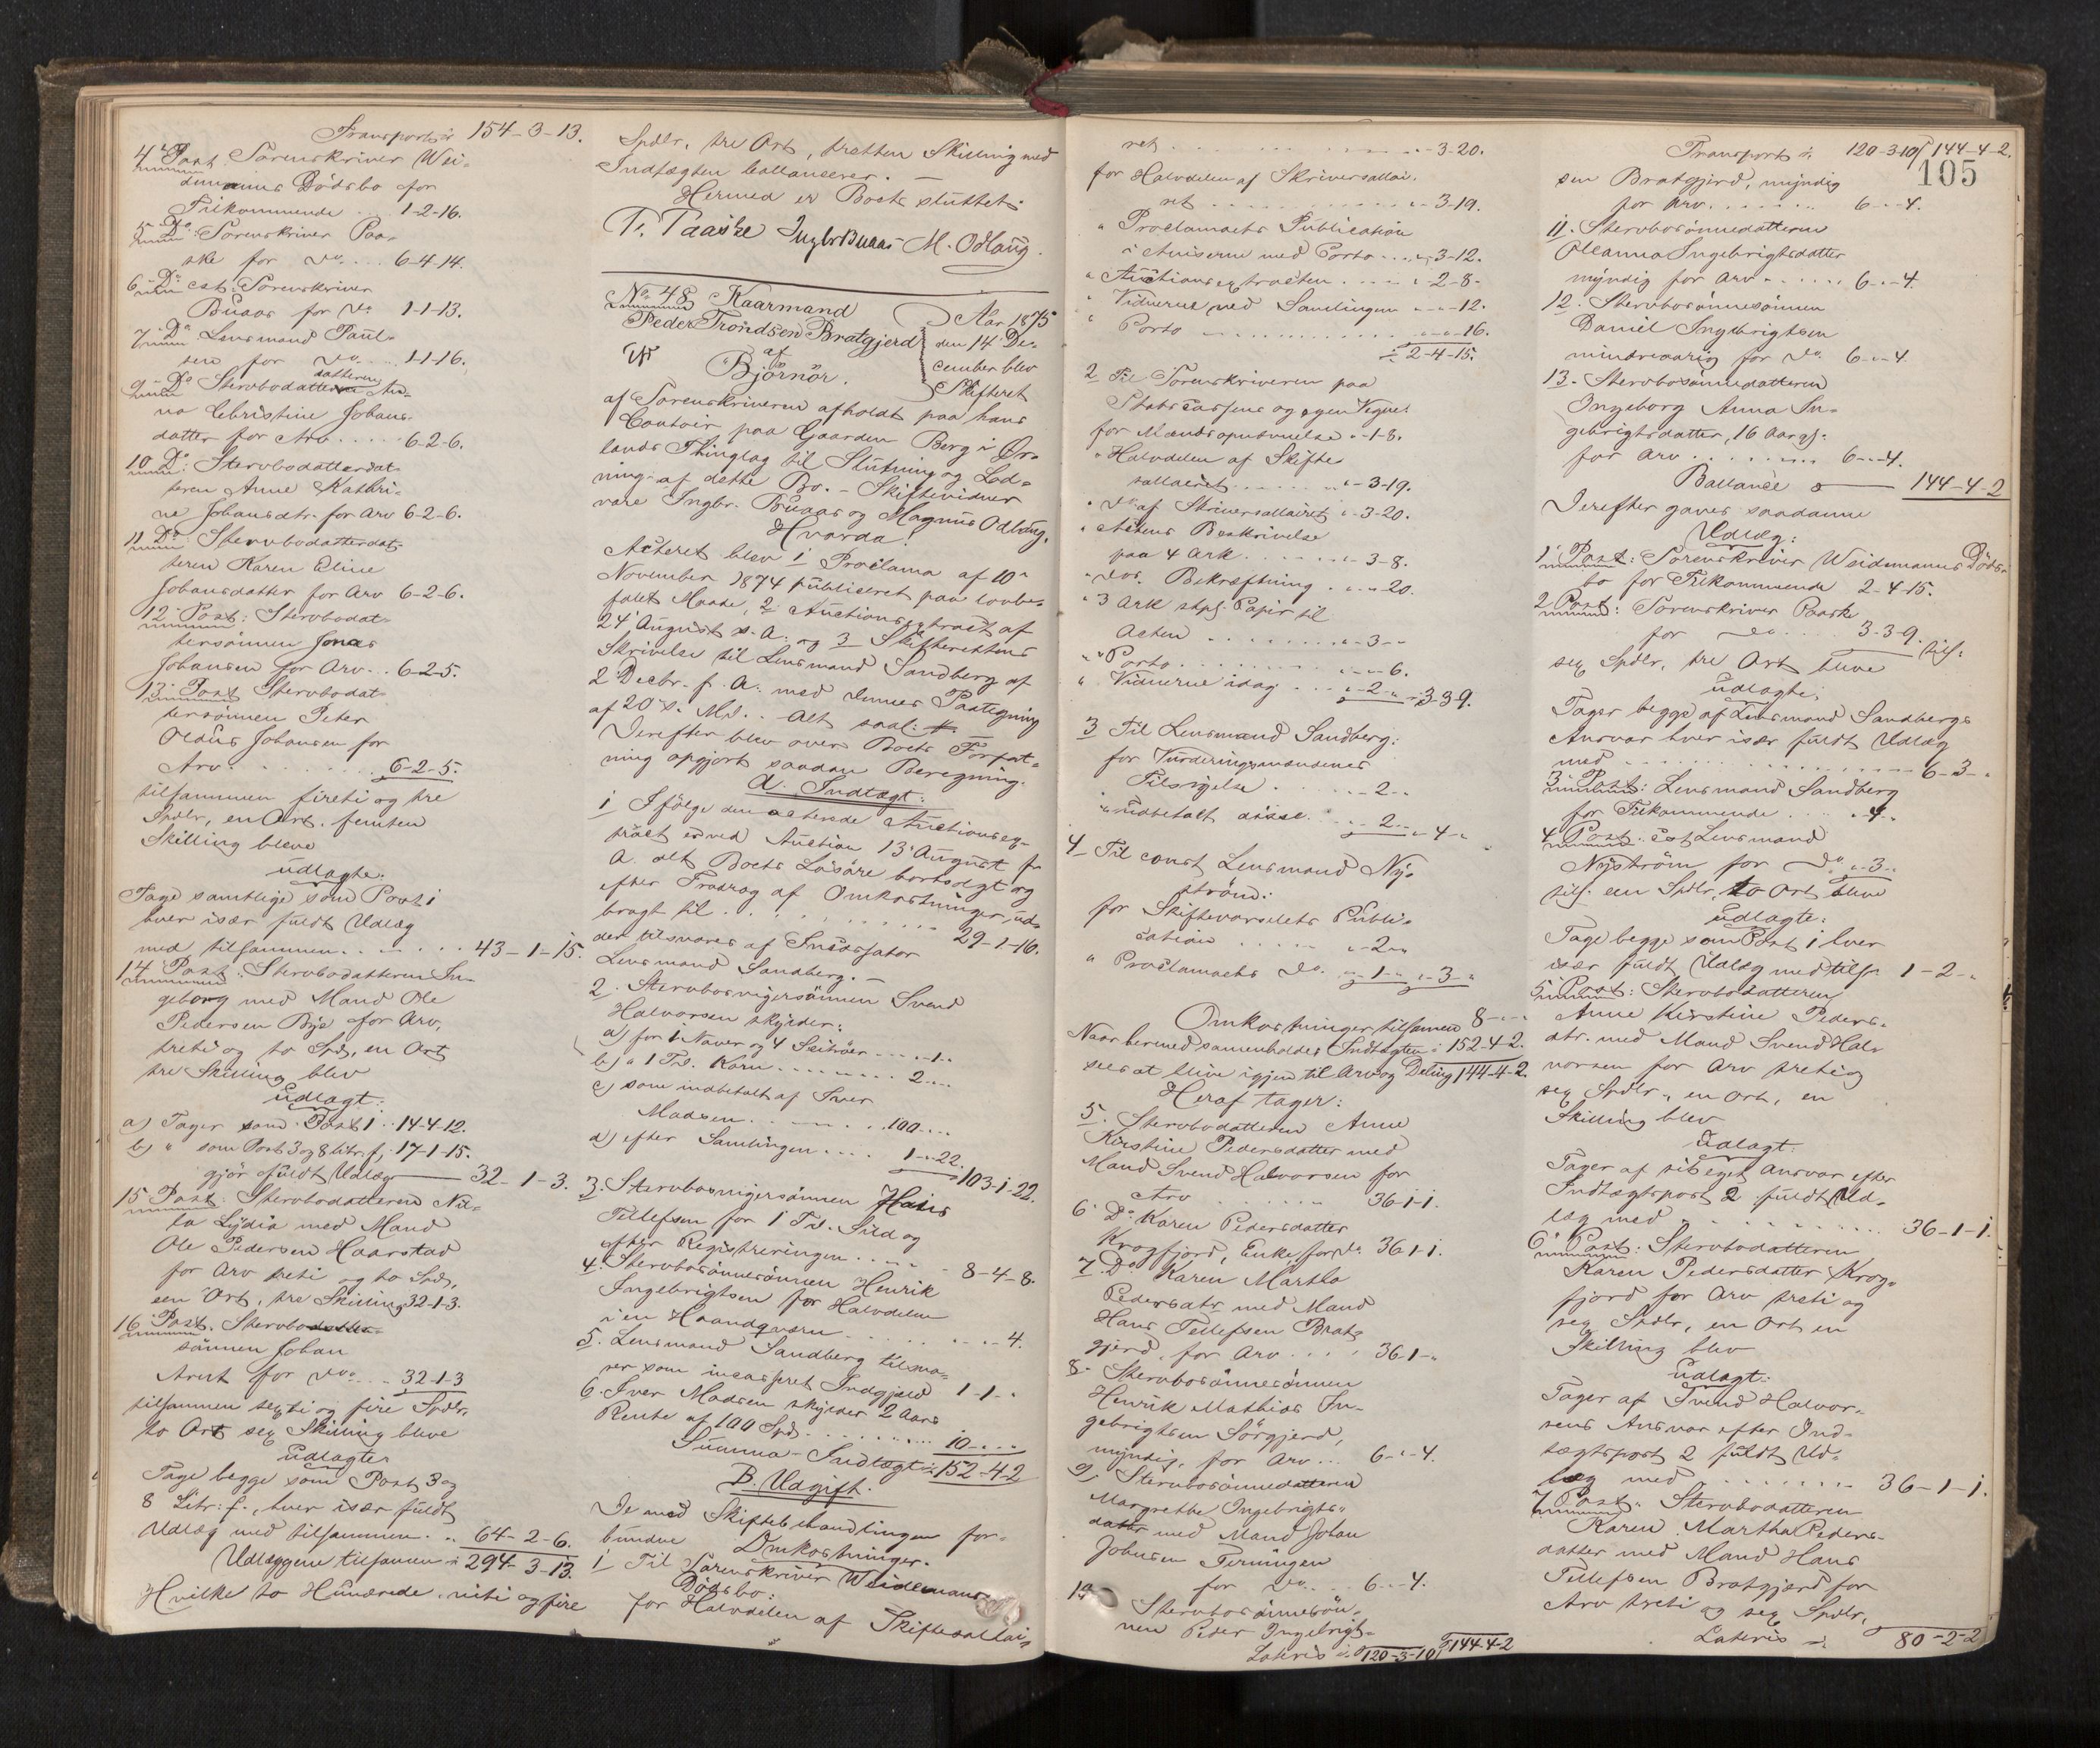 Transport ÷ 154-3-13.
4' Post. Sorenskriver Wei-
demanns Dödsbo for
Tilkommende . . 1-2-16.
5. Do: Sorenskriver Paa-
ske for do. . . . 6-4-14.
6. Do cst. Sorenskriver
Buaas for do. 1-1-13.
7. Do Lensmand Paul-
sen for do. . . 1-1-16.
datteren
9. Do Stervbodatter An-
na Christine Johans-
datter for Arv . . . . . 6-2-6.
10 Do: Stervbodatterdat-
teren Anne Kathri-
ne Johansdtr. for Arv 6-2-6.
11 Do: Stervbodatterdat-
teren Karen Eline
Johansdatter for Arv 6-2-6.
12 Post: Stervbodat-
tersönnen Jonas
Johansen for Arv . . 6-2-5.
13 Post Stervbodat-
tersönnen Peter
Oldus Johansen for
Arv . . . . . . . . 6-2-5.
tilsammen fireti og tre
Spdlr, en Ort. femten
Skilling bleve
udlagte:
Tage samtlige som Post 1
hver især fuldt Udlæg
med tilsammen . . . . . . . 43-1-15.
14 Post: Stervbodatteren In-
geborg med Mand Ole
Pedersen Bye for Arv,
treti og to Spd, en Ort
tre Skilling blev
udlagt:
a) Tager som Post 1 . . 14-4-12.
b) " som Post 3 og 8 Litr. f, 17-1-15.
gjör fuldt Udlæg 32-1-3.
15 Post. Stervbodatteren Nik-
la Lydia med Mand
Ole Pedersen Haarstad
for Arv treti og to Spd,
een Ort, tre Skilling 32-1-3.
16 Post. Stervbodatter-
sönnen Johan
Arnt for do. . . 32-1-3
tilsammen sexti og fire Spdlr,
to Ort sex Skilling bleve
udlagte
Tage begge som Post 3 og
8 Litr: f., hver især fuldt
Udlæg med tilsammen . . . 64-2-6.
Udlæggene tilsamen ÷ 294-3-13.
Hvilke to Hundrede, niti og fire
Spdlr, tre Ort, tretten Skilling med
Indtægten ballancerer. —
Hermed er Boets sluttet.
Fr. Paaske Ingbr Buaas M. Odlaug.
No 48 Kaarmand
Peder Trondsen Bratgjerd
af
Björnör.
Aar 1875
den 14 De-
cember blev
Skifteret
af Sorenskriveren afholdt paa hans
Contoir paa Gaarden Berg i Ör-
lands Thinglag til Slutning og Lod-
ning af dette Bo. – Skiftevidner
vare Ingbr. Buaas og Magnus Odlaug.
Hvorda!
Acteret blev 1 Proclama af 10'
November 1874 publiceret paa lovbe-
falet Maade, 2 Auctionsextract af
24 August s. A. og 3 Skifterettens
Skrivelse til Lensmand Sandberg af
2 Decbr. f. A. med dennes Paategning
af 20 s. Md. . Alt saal:
Derefter blev over Boets Forfat-
ning opgjort saadan Beregning.
A. Indtægt:
1 Ifölge den acterede Auctionsex-
tract er ved Auction 13 August f.
A. alt Boets Lösöre bortsolgt og
efter Fradrag af Omkostninger, ud-
bragt til . . . . . . . . . . 29-1-16.
der tilsvares af Incassator
Lensmand Sandberg. —
2. Stervbosvigersönnen Svend
Halvorsen skylder:
a) for 1 Naver og 4 Seitröer . . . . . 1 . .
b) " 1 Td. Korn . . . . . . . . 2 . . . .
c) som indbetalt af Iver
Madsen . . . . . . . 100 . . . .
d) efter Samlingen . . . . 1-"-22. 103-1-22.
3. Stervbosvigersönnen Hans
Tellefsen for 1 Td. Sild og
efter Registreringen . . . . . 8-4-8.
4. Stervbosönnesönnen Henrik
Ingebrigtsen for Halvdelen
i en Haandqværn . . . . . . . . 4.
5. Lensmand Sandberg tilsva-
rer som incasseret Indgjæld 1-1-"
6. Iver Madsen skylder 2 Aars
Rente af 100 Spd . . . . . . . . 10 . . . .
Summa-Indtægt ÷ 152-4-2
B. Udgift.
De med Skiftebehandlingen for-
bundne Omkostninger.
1 Til Sorenskriver Weidemanns
Dödsbo:
for Halvdelen af Skiftesallai-
ret . . . . . . . . . . . . " - 3-20.
for Halvdelen af Skriversallai-
ret . . . . . . . . . . . . " - 3-19.
" Proclamaets Publication
i Aviserne med Porto . . . " - 3-12.
" Auctionsextracten . . . . . " - 2-8.
" Vidnerne ved Samlingen " - " - 12.
" Porto . . . . . . . . . . . " - " - 16.
÷ 2-4-15.
2 Til Sorenskriveren paa
Statscassens og egen Vegne:
for Mandsopnævnelse " -1-8.
" Halvdelen af Skifte-
sallairet . . . . . . . " - 3-19.
" do af Skriversallairet " - 3-20.
" Actens Beskrivelse
paa 4 Ark . . . . . . . " - 3-8.
" dos. Bekræftning . . " - " - 20.
" 3 Ark stpl. Papir til
Acten . . . . . . . . " - 3 - "
" Porto . . . . . . . . . " - " - 6.
" Vidnerne idag . . . " - 2 - " 3-3-9.
3 Til Lensmand Sandberg:
for Vurderingsmændenes
Tilsigelse . . . . . . . - 2 - "
" udbetalt disse . . . . 2 - " - 4 - "
4 Til const Lensmand Ny-
ström:
for Skiftevarselets Publi-
cation . . . . . " - 2 - "
" Proclamaets do. " - 1 - " " - 3 - "
Omkostninger tilsamen 8 - " - "
Naar hermed samenholdes Indtægten ÷ 152-4-2.
sees at blive igjen til Arv og Deling 144-4-2.
Heraf tager:
5. Stervbodatteren Anne
Kirstine Pedersdatter med
Mand Svend Halvorsen for
Arv . . . . . . . 36-1-1.
6. Do: Karen Pedersdatter
Krogfjord, Enke for do. 36-1-1.
7. Do Karen Martha
Pedersdtr med Mand
Hans Tellefsen Brat-
gjerd, for Arv . . . . 36-1-"
8. Stervbosönnesönnen
Henrik Mathias In-
gebrigtsen Sörgjerd,
myndig, for Arv . . . 6-"-4.
9. Stervbosönnedatteren
Margrethe Ingebrigts-
datter med Mand Johan
Johnsen Terningen
for do. . . . 6-"-4.
10
Stervbosönnesön-
nen Peder Ingebrigt-
Lateris ÷ 120-3-10 144-4-2
Transport ÷ 120-3-10 144-4-2.
105
sen Bratgjerd, myndig
for Arv . . . . . . . 6-"-4.
11. Stervbosönnedatteren
Oleanna Ingebrigtsdatter
myndig for Arv . . . . . . 6-"-4.
12. Stervbosönnesönnen
Daniel Ingebrigtsen
mindreaarig for do. 6-"-4.
13. Stervbosönnedatteren
Ingeborg Anna In-
gebrigtsdatter, 16 Aar gl.
for Arv . . . . . . . . 6-"-4.
Ballance 144-4-2
Derefter gaves saadanne
Udlæg:
1 Post: Sorenskriver Weidemanns Döds-
bo for Tilkommende 2-4-15.
2 Post: Sorenskriver Paaske
for do . . . . 3-3-9. tils:
sex Spdlr, tre Ort bleve
udlagte:
Tager begge af Lensmand Sandbergs
Ansvar hver især fuldt Udlæg
med . . . . . . . . . . . . . . . 6-3-"
3 Post: Lensmand Sandberg
for Tilkommende . . . " 4 "
4 Post. cst Lensmand
Nyström for do. " - 3 - "
tils. een Spdlr, to Ort bleve
udlagte:
Tage begge som Post 1 hver
især fuldt Udlæg med tils. 1-2-"
5 Post: Stervbodatteren
Anne Kirstine Peders-
dtr. med Mand Svend Hal-
vorsen for Arv treti og
sex Spdlr., en Ort, en
Skilling blev
udlagt:
Tager af sit eget Ansvar efter
Indtægtspost 2 fuldt Ud-
læg med . . . . . . . . . . . 36-1-1.
6 Post: Stervbodatteren
Karen Pedersdatter Krog-
fjord for Arv treti og
sex Spdlr, en Ort en
Skilling blev
udlagt:
Tager af Svend Halvor-
sens Ansvar efter Ind-
tægtspost 2 fuldt Ud-
læg med . . . . . . . . 36-1-1.
7 Post. Stervbodatteren
Karen Martha Peders-
datter med Mand Hans
Tellefsen Bratgjerd for
Arv treti og sex Spdlr,
Lateris ÷ 80-2-2